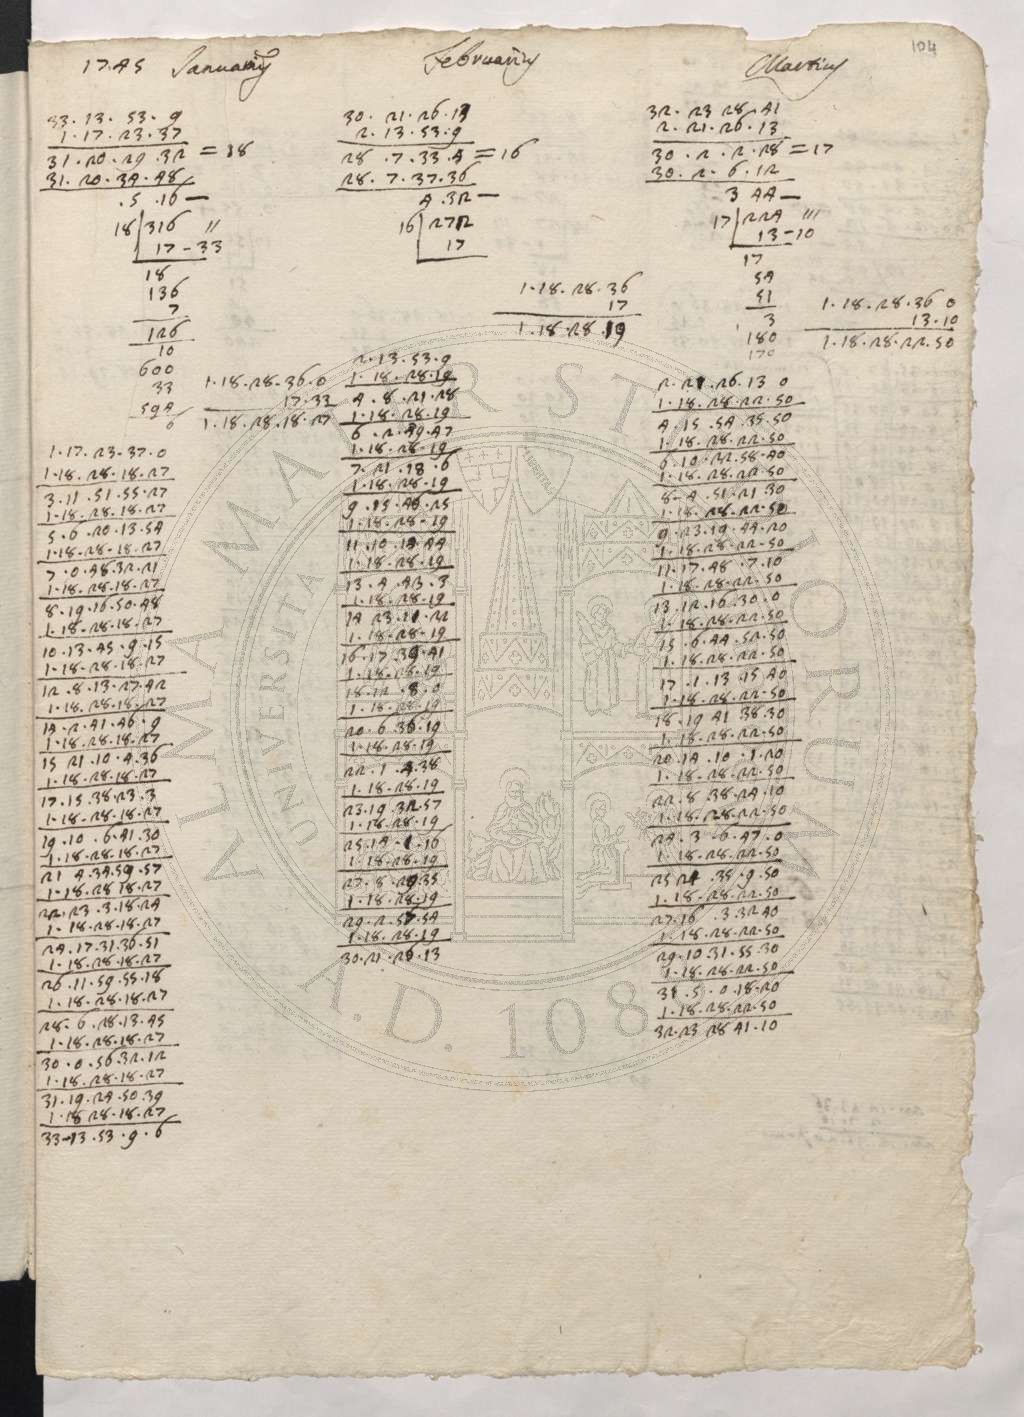 104
1745 Januarij
33. 13. 53. 9
1. 17. 23. 37
31. 20. 29. 32 = 18
31. 20. 34. 48
.5 .16 —
18 316 "
17 - 33
18
136
7
126
10
600
33
594
6
1.18.28.36.0
17.33
1.18.28.18.27
1.17.23.37.0
1.18.28.18.27
3.11.51.55.27
1.18.28.18.27
5.6.20.13.54
1.18.28.18.27
7.0.48.32.21
1.18.28.18.27
8.19.16.50.48
1.18.28.18.27
10.13.45.9.15
1.18.28.18.27
12.8.13.27.42
1.18.28.18.27
14.2.41.46.9
1.18.28.18.27
15 21.10.4.36
1.18.28.18.27
17.15.38.23.3
1.18.28.18.27
19.10.6.41.30
1.18.28.18.27
21 4.34.59.57
1.18.28.18.27
22.23.3.18.24
1.18.28.18.27
24.17.31.36.51
1.18.28.18.27
26.11.59.55.18
1.18.28.18.27
28.6.28.13.45
1.18.28.18.27
30.0.56.32.12
1.18.28.18.27
31.19.24.50.39
1.18.28.18.27
33.13.53.9.6
Februarij
30. 21.26.13
2.13.53.9
28.7.33.4 = 16
28.7.37.36
4.32 —
16 272
17
1.18.28.36
17
1.18.28.19
2.13.53.9
1.18.28.19
4.8.21.28
1.18.28.19
6.2.49.47
1.18.28.19
7.21.18.6
1.18.28.19
9.15.46.25
1.18.28.19
11.10.14.44
1.18.28.19
13.4.43.3
1.18.28.19
14 23.11.22
1.18.28.19
16.17.39.41
1.18.28.19
18.12.8.0
1.18.28.19
20.6.36.19
1.18.28.19
22.1.4.38
1.18.28.19
23.19.32.57
1.18.28.19
25.14.1.16
1.18.28.19
27.8.29.35
1.18.28.19
29.2.57.54
1.18.28.19
30.21.26.13
Martius
32.23 28.41
2.21.26.13
30.2.2.28 = 17
30.2.6.12
3 44 —
17 224 '''
13-10
17
54
51
3
180
170
1.18.28.36 0
13.10
1.18.28.22.50
2.21.26.13 0
1.18.28.22.50
4.15.54.35.50
1.18.28.22.50
6.10.22.58.40
1.18.28.22.50
8-4.51.21 30
1.18.28.22.50
9.23.19.44.20
1.18.28.22.50
11.17.48.7.10
1.18.28.22.50
13.12.16.30.0
1.18.28.22.50
15.6.44.52.50
1.18.28.22.50
17.1.13.15.40
1.18.28.22.50
18.19 41 38.30
1.18.28.22.50
20.14.10.1.20
1.18.28.22.50
22.8.38.24.10
1.18.28.22.50
24.3 6.47.0
1.18.28.22.50
25 21.35.9.50
1.18.28.22.50
27.16.3.32 40
1.18.28.22.50
29.10.31.55.30
1.18.28.22.50
31.5.0.18.20
1.18.28.22.50
32.23 28 41.10
ALMA MATER STUDIORUM
UNIVERSITÀ
A.D. 1088